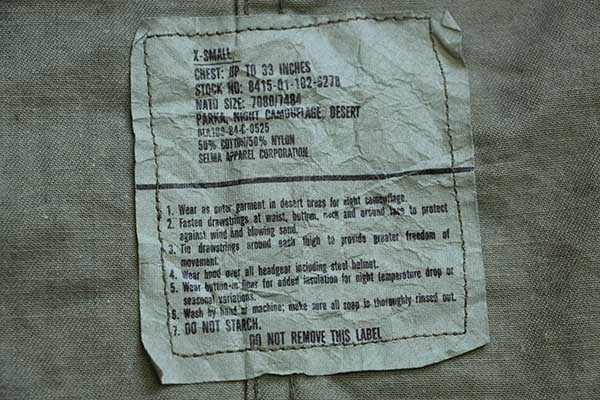 X-SMALL
CHEST: UP TO 33 INCHES
STOCK NO: 8415-01-102-6276
NATO SIZE: 7080/7484
PARKA, NIGHT CAMOUFLAGE, DESERT
DLA100-84-C-0525
50% COTTON/50% NYLON
SELMA APPAREL CORPORATION
1. Wear as outer garment in desert areas for night camouflage.
2. Fasten drawstrings at waist, bottom, neck and around face to protect
against wind and blowing sand.
3. Tie drawstrings around each thigh to provide greater freedom of
movement.
4. Wear hood over all headgear including steel helmet.
5. Wear button-in liner for added insulation for night temperature drop or
seasonal variations.
6. Wash by hand or machine; make sure all soap is thoroughly rinsed out.
7. DO NOT STARCH.
DO NOT REMOVE THIS LABEL